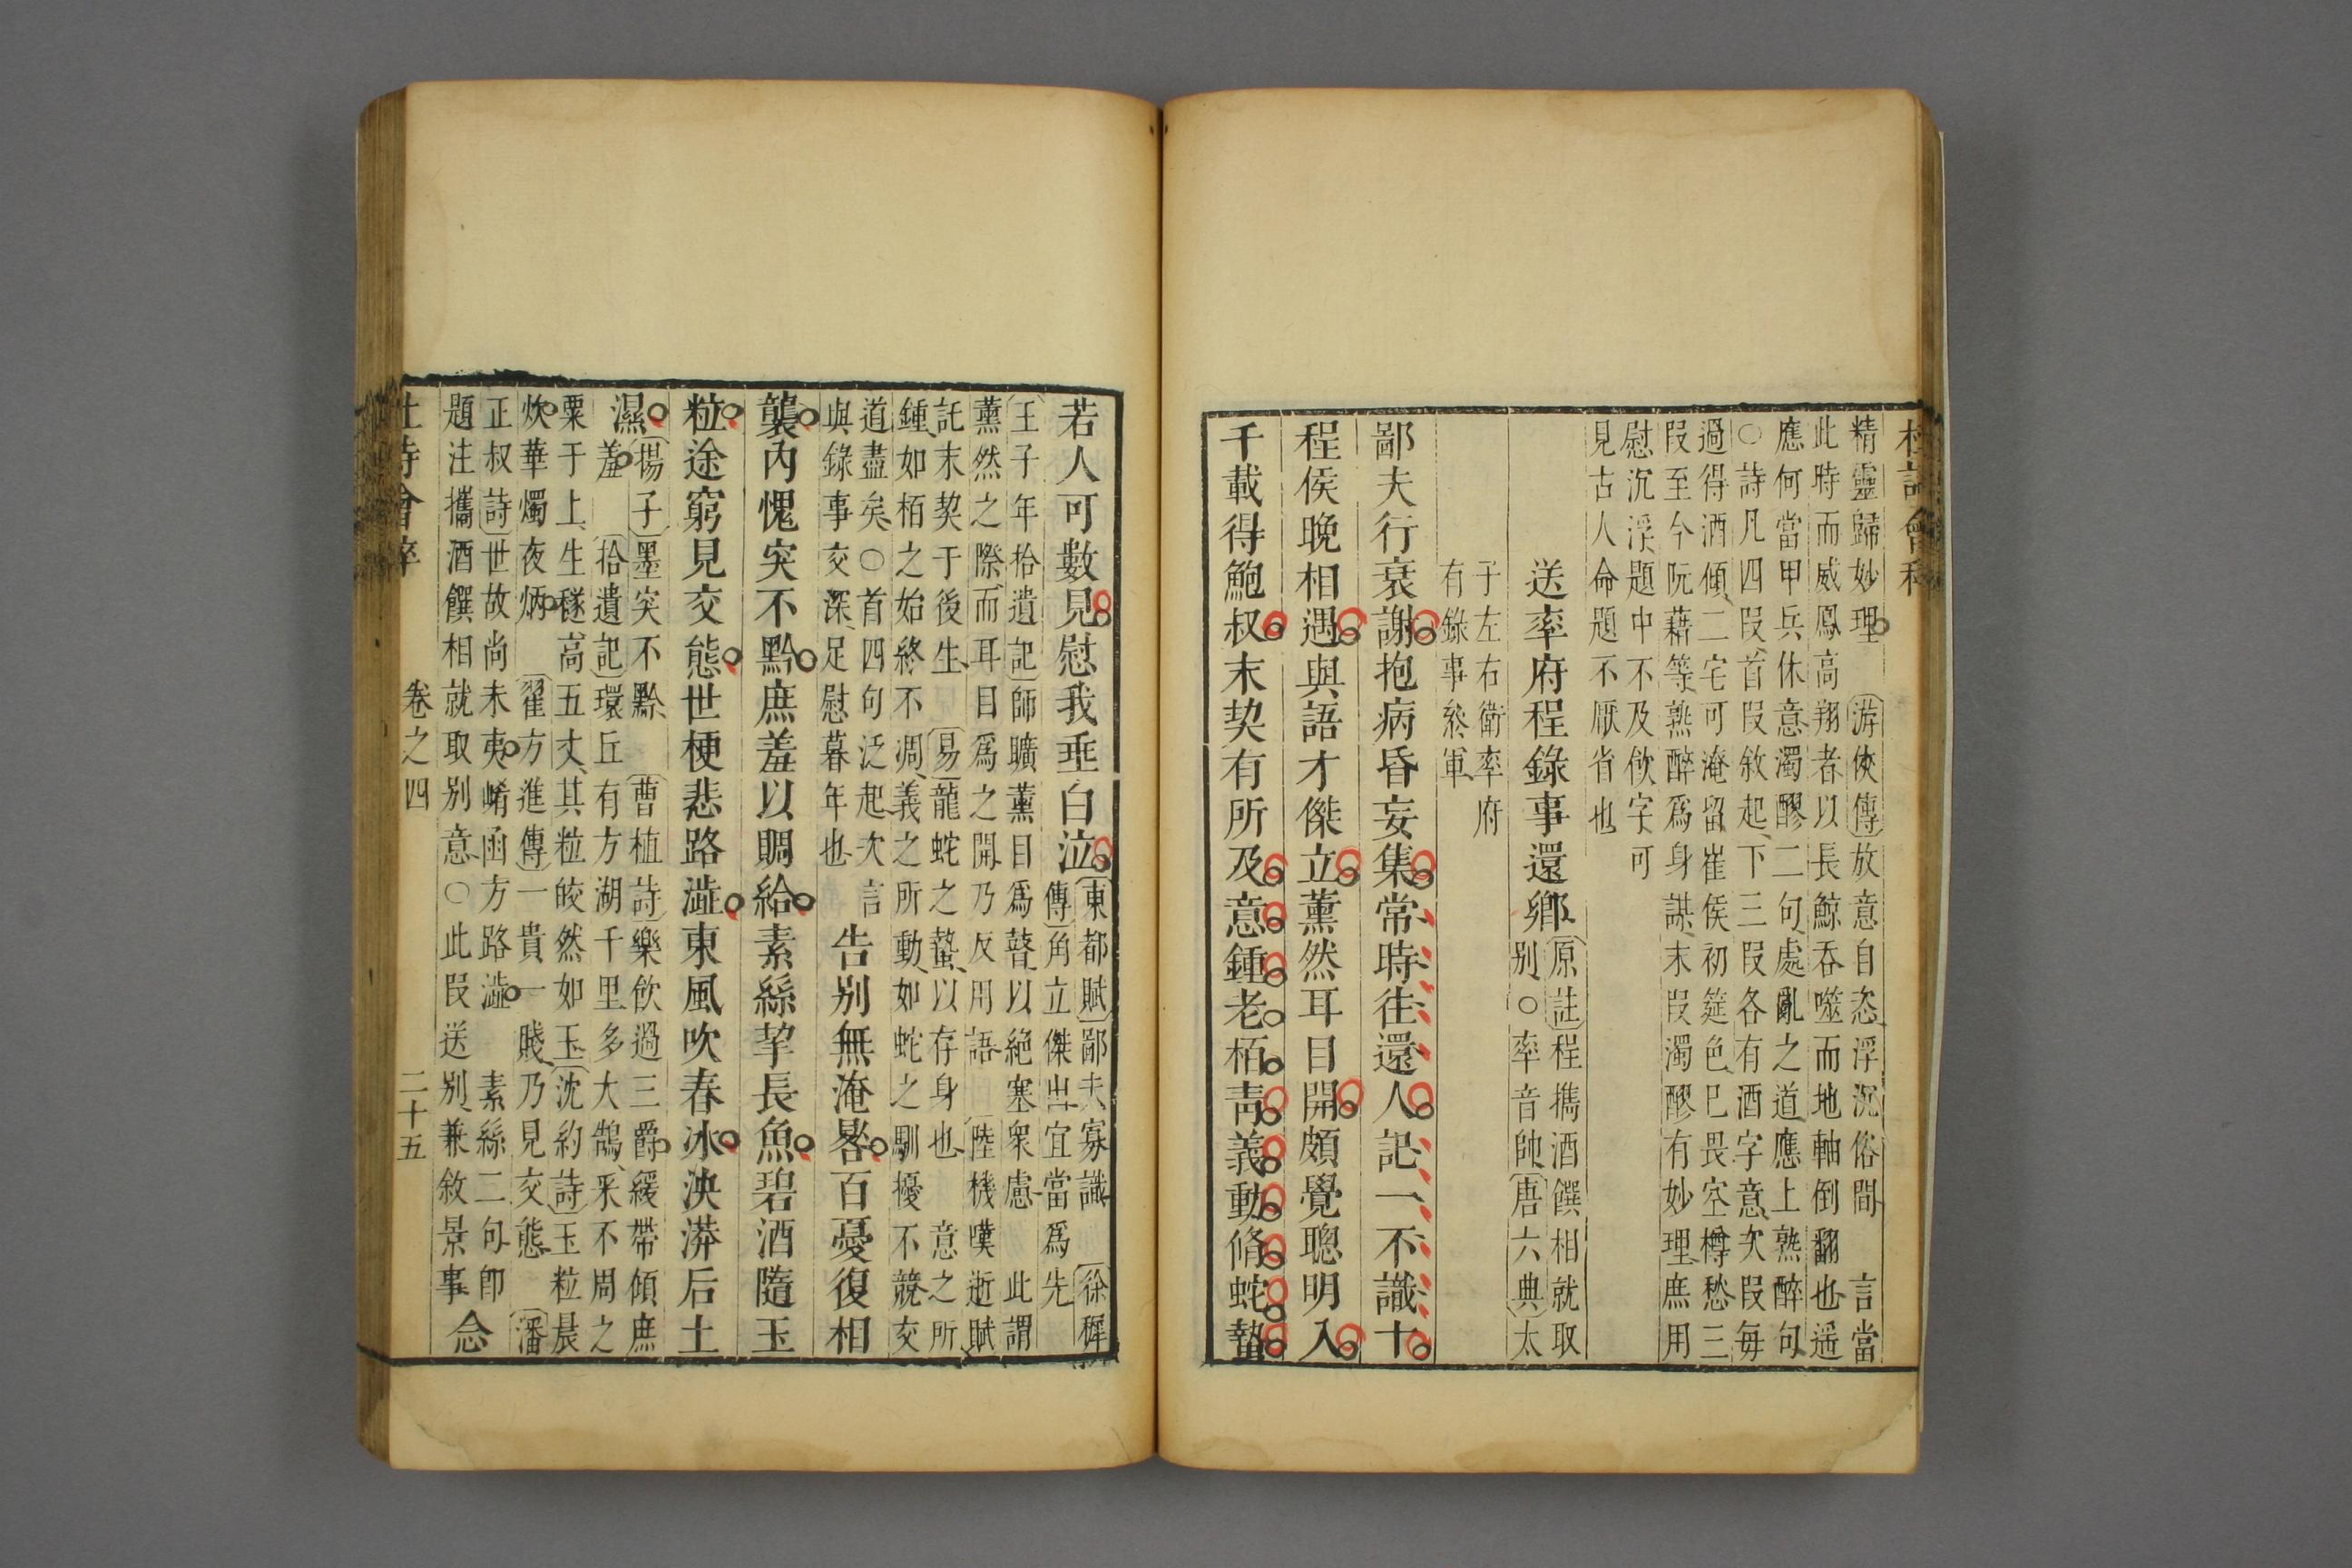 精靈歸妙理 游俠傳放意自恣浮沉俗間 言當
此時而威鳳高翔者以長鯨吞噬而地軸倒翻也遥
應何當甲兵休意濁醪二句處亂之道應上熟醉句
○詩凡四叚首叚敘起下三叚各有酒字意次叚每
過得酒傾二宅可淹留崔侯初筵色已畏空樽愁三
叚至今阮藉等熟醉爲身謀末叚濁醪有妙理庶用
慰沉浮題中不及飲字可
見古人命題不厭省也
送率府程錄事還鄉
原註程攜酒饌相就取
别○率音帥唐六典太
子左右衛率府
有錄事叅軍
鄙夫行衰謝抱病昏妄集常時往還人記一不識十
程侯晚相遇與語才傑立薰然耳目開頗覺聰明入
千載得鮑叔末契有所及意鍾老栢青義動脩蛇蟄
若人可數見慰我垂白泣
東都賦鄙夫寡識 徐穉
傳角立傑出宜當爲先
王子年拾遺記師曠薰目爲瞽以絕塞衆慮 此謂
薰然之際而耳目爲之開乃反用語 陸機嘆逝賦
託末契于後生 易龍蛇之蟄以存身也 意之所
鍾如栢之始終不凋義之所動如蛇之馴擾不競交
道盡矣○首四句泛起次言
與錄事交深足慰暮年也
告别無淹晷百憂復相
襲内愧突不黔庶羞以賙給素絲挈長魚碧酒隨玉
粒途窮見交態世梗悲路澁東風吹春冰泱漭后土
濕
揚子墨突不黔 曹植詩樂飲過三爵緩帶傾庶
羞 拾遺記環丘有方湖千里多大鵠釆不周之
粟于上生穟高五丈其粒皎然如玉沈約詩玉粒晨
炊華燭夜炳 翟方進傳一貴一賤乃見交態 潘
正叔詩世故尚未夷崤函方路澁 素絲二句卽
題注攜酒饌相就取别意○此叚送别兼敘景事
念
卷之四 二十五